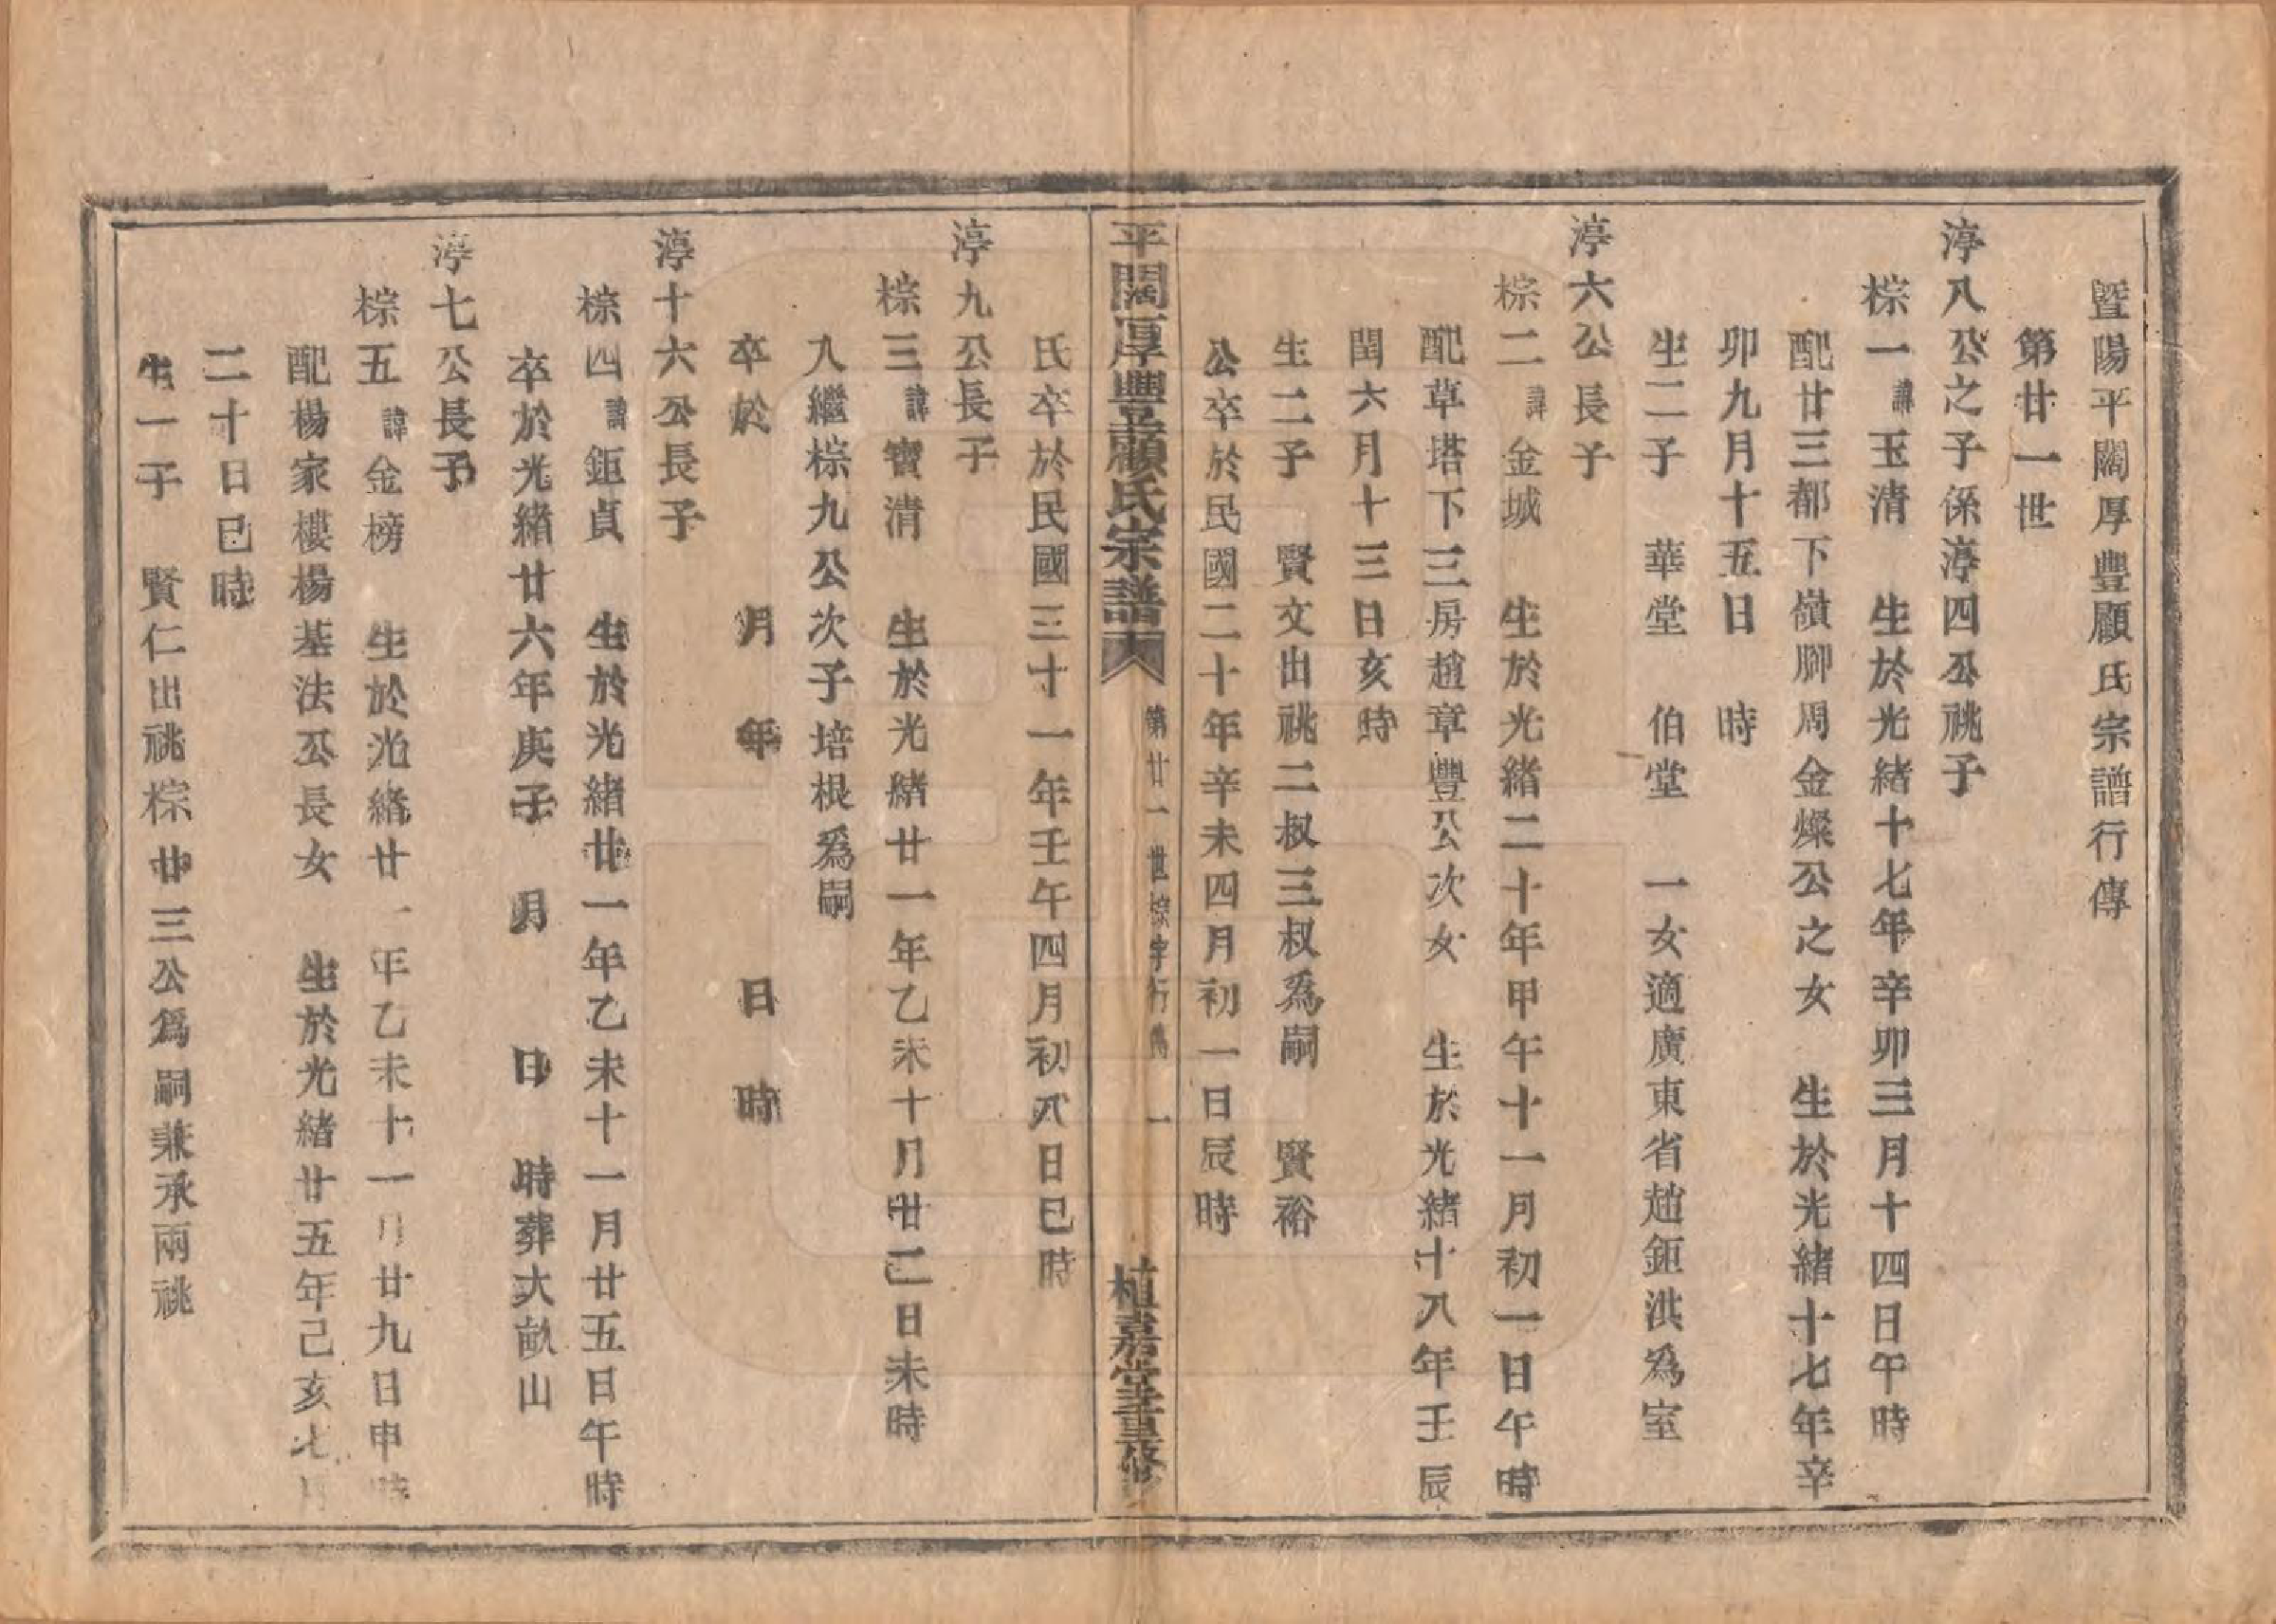 暨陽平闊厚豐顧氏宗譜行傳
第廿一世
渟八公之子係渟四公祧子
棕一諱玉清 生於光緒十七年辛卯三月十四日午時
配廿三都下嶺腳周金燦公之女 生於光緒十七年辛
卯九月十五日 時
生二子 華堂 伯堂 一女適廣東省趙鉅洪為室
渟六公長子
棕二諱金城 生於光緒二十年甲午十一月初一日午時
配草塔下三房趙章豐公次女 生於光緒十八年壬辰
閏六月十三日亥時
生二子 賢文出祧二叔三叔為嗣 賢裕
公卒於民國二十年辛未四月初一日辰時
平闊厚豐顧氏宗譜 第廿一世棕字行傳 一 植嘉堂重修
氏卒於民國三十一年壬午四月初八日巳時
渟九公長子
棕三諱寶清 生於光緒廿一年乙未十月廿二日未時
入繼棕九公次子培根爲嗣
卒於 月 年 日 時
渟十六公長子
棕四諱鉅貞 生於光緒廿一年乙未十一月廿五日午時
卒於光緒廿六年庚子 月 日 時葬大畝山
渟七公長子
棕五諱金榜 生於光緒廿一年乙未十一月廿九日申時
配楊家樓楊基法公長女 生於光緒廿五年己亥七月
二十日巳時
生一子 賢仁出祧棕廿三公爲嗣兼承兩祧